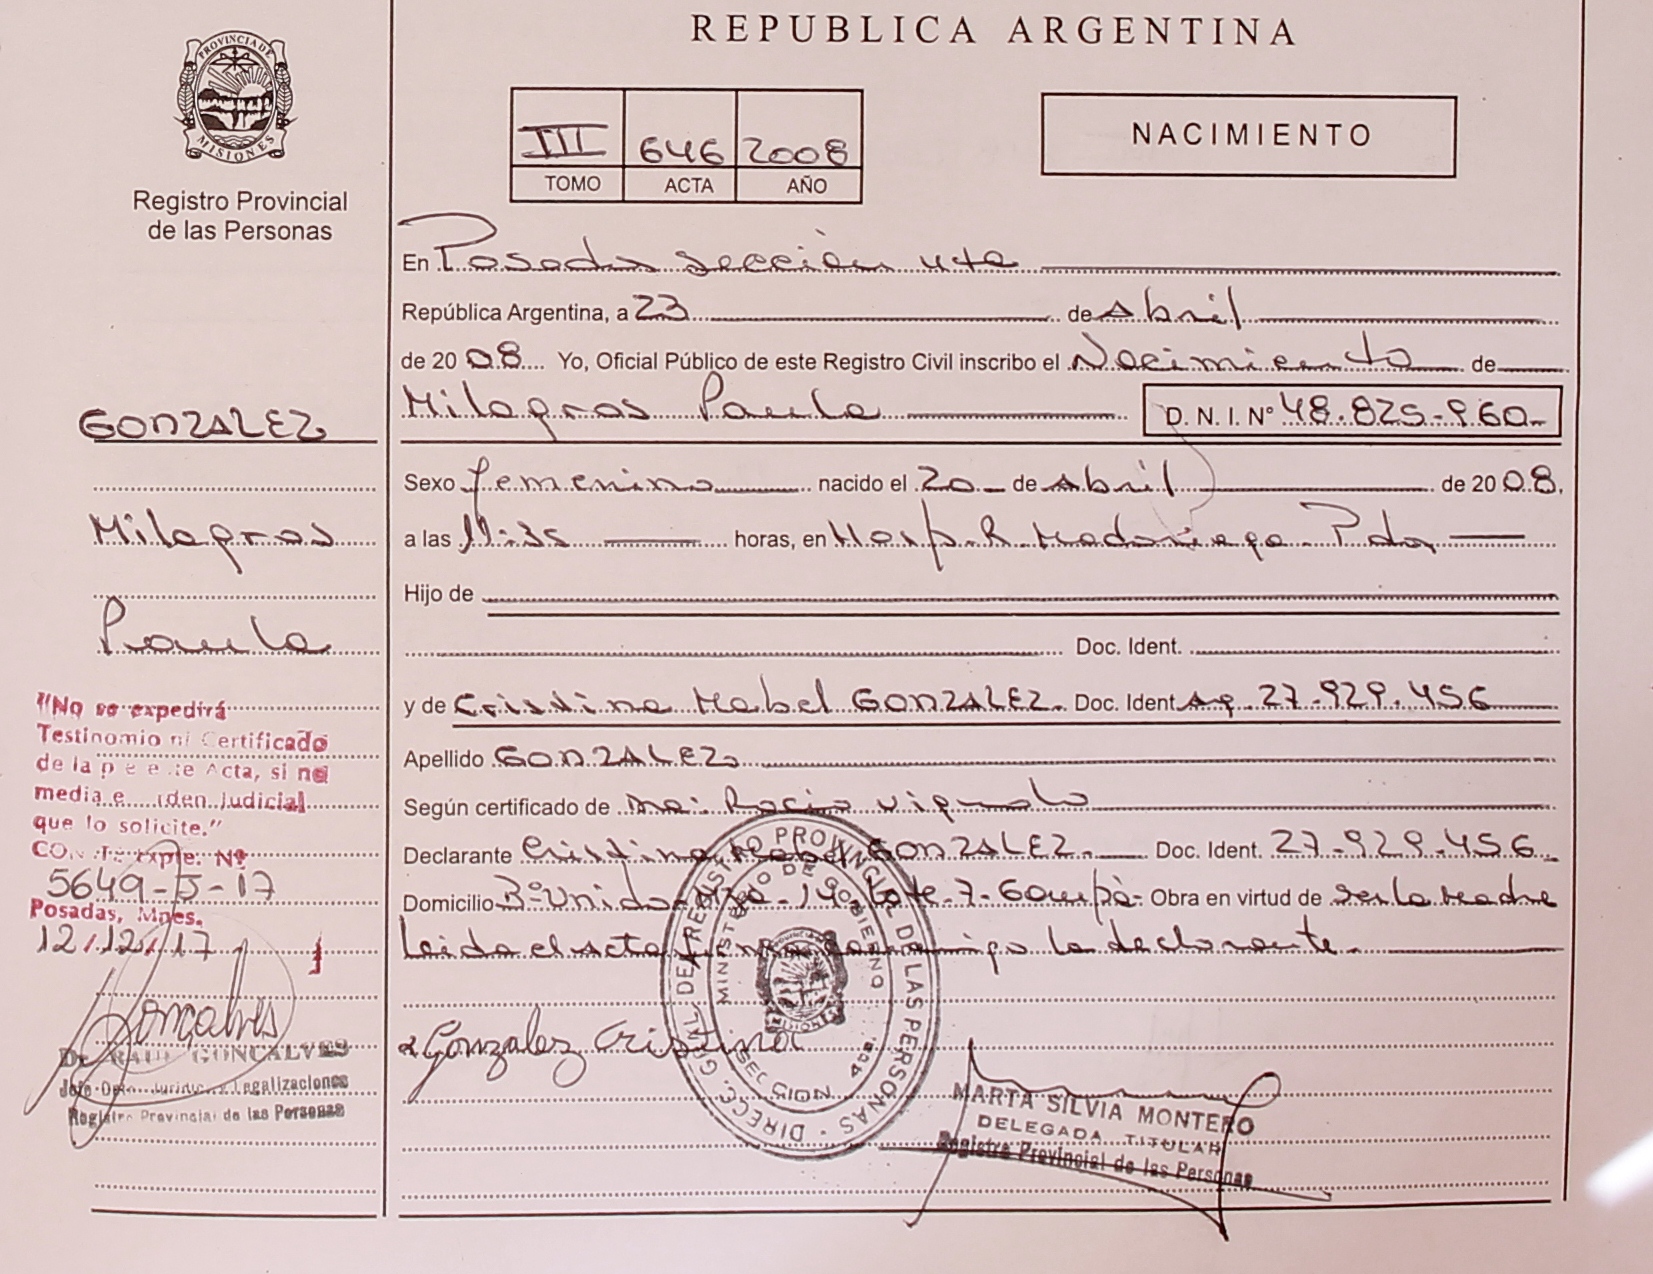 REPUBLICA ARGENTINA
PROVINCIA DE MISIONES
Registro Provincial
de las Personas
III 646 2008
TOMO ACTA AÑO
NACIMIENTO
En Posadas sección 4ta
República Argentina, a 23 de Abril
de 2008 Yo, Oficial Público de este Registro Civil inscribo el Nacimiento de
Milagros Paula D. N. I. Nº 48.825.960-
GONZALEZ
Milagros
Paula
Sexo femenino nacido el 20 de Abril de 2008,
a las 11:35 horas, en Hosp. R. Madariaga Pdas
Hijo de
Doc. Ident.
y de Cristina Mabel GONZALEZ. Doc. Ident Ar. 27.929.456
Apellido GONZALEZ
Según certificado de Ma: Rocio
Declarante Cristina Mabel GONZALEZ. Doc. Ident. 27.929.456
Domicilio Bº Unido Mza. 19. Lote 7- Garupà- Obra en virtud de ser la Madre
leida el Acta firma conmigo la declarante.
"No se expedirá
Testinomio ni Certificado
de la Acta, si no
media judicial
que lo solicite."
Expte: Nº
5649-J-17
Posadas, Mnes.
12/12/17
Gonçalves
Dr. RAUL GONCALVES
Jefe Legalizaciones
Registro Provincial de las Personas
Gonzalez Cristina
DIRECC. GRAL. DEL REGISTRO PROVINCIAL DE LAS PERSONAS
MINISTERIO DE GOBIERNO
SECCION 4ta.
MARTA SILVIA MONTERO
DELEGADA TITULAR
Registro Provincial de las Personas